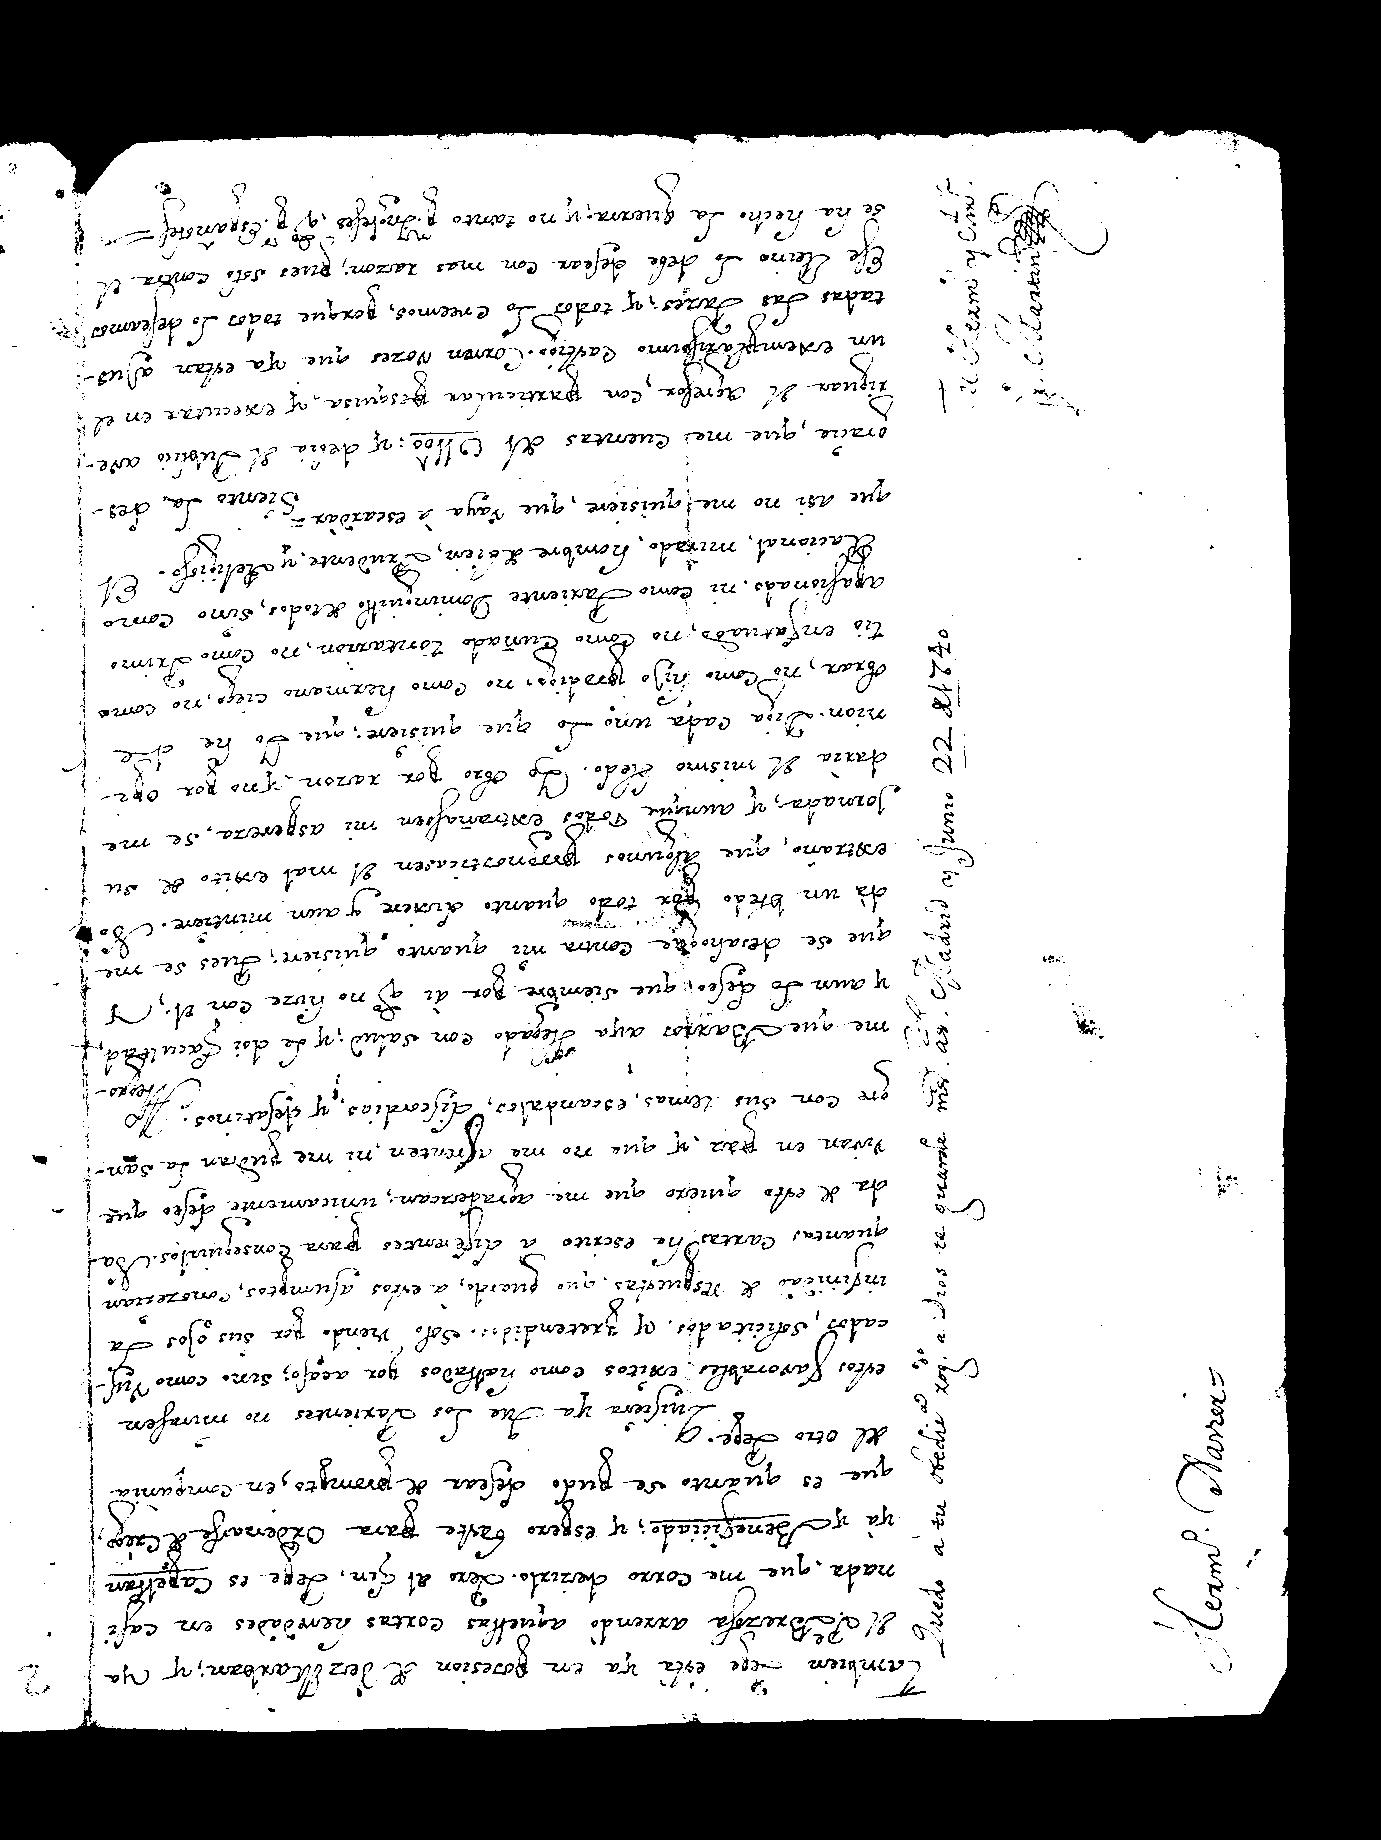 Tambien Pepe està ya en posesion de Diez Marban; y, ya
el Dr. Brezosa arrendò aquellas cortas heredades en casi
nada, que me corro decirlo. Pero al fin, Pepe es Capellan
ya y Beneficiado; y espero baste para Ordenarse
que es quanto se pudo desear de prompto, en Compañia
del otro Pepe.
Quisiera ya que los Parientes no mirassen
estos favorables exitos como hallados por acaso; sino como bus-
cados, solicitados, y pretendidos: solo viendo por sus ojos la
infinidad de respuestas, que guardo, à estos asumptos, conozerian
quantas Cartas he escrito à diferentes para Conseguirlos. Na-
da de esto quiero que me agradezcan; unicamente deseo que
vivan en paz, y que no me afrenten, ni me pudran la san-
gre con sus temas, escandalos, discordias, y desatinos. Alegro-
me que Barrios aya llegado con salud; y le doi facultad,
y aun lo deseo, que siembre por ài qe no hize con el, y
que se desahogue contra mi quanto quisiere; Pues se me
dà un bledo por todo quanto dixere y aun mintiere. No
extraño, que algunos pronosticasen el mal exito de su
Jornada; y aunque todos extrañassen mi aspereza, se me
daria el mismo bledo. Yo obro por razon, y no por opi-
nion. Diga cada uno lo que quisiere; que Yo he de
obrar, no como hijo prodigo; no como hermano ciego, no como
tio enfatuado, no como Cuñado tontarron, no como Primo
apasionado, ni como Pariente Dominguillo de todos; sino como
Racional, mirado, hombre de bien, Prudente, y Religioso. El
que asi no me quisiere, que vaya à escardar = Siento la des-
gracia, que me cuentas del Mro; y debia el Publico ave-
riguar el Agresor, con particular pesquisa, y executar en el
un exemplarissimo Castigo. Corren vozes que ya estan ajus-
tadas las Pazes; y todos lo creemos, porque todos lo deseamos
Ese Reino lo debe desear con mas razon; pues solo contra el
se ha hecho la guerra; y no tanto pr. Ingleses, qto pr. Españoles =
Quedo a tu obedica. rogdo. a Dios te guarde ms. as. Madrid y Junio 22 de 1740
Tu Herm.o y Cap.n
Fr. Martin
Herm.o Xavier =
2